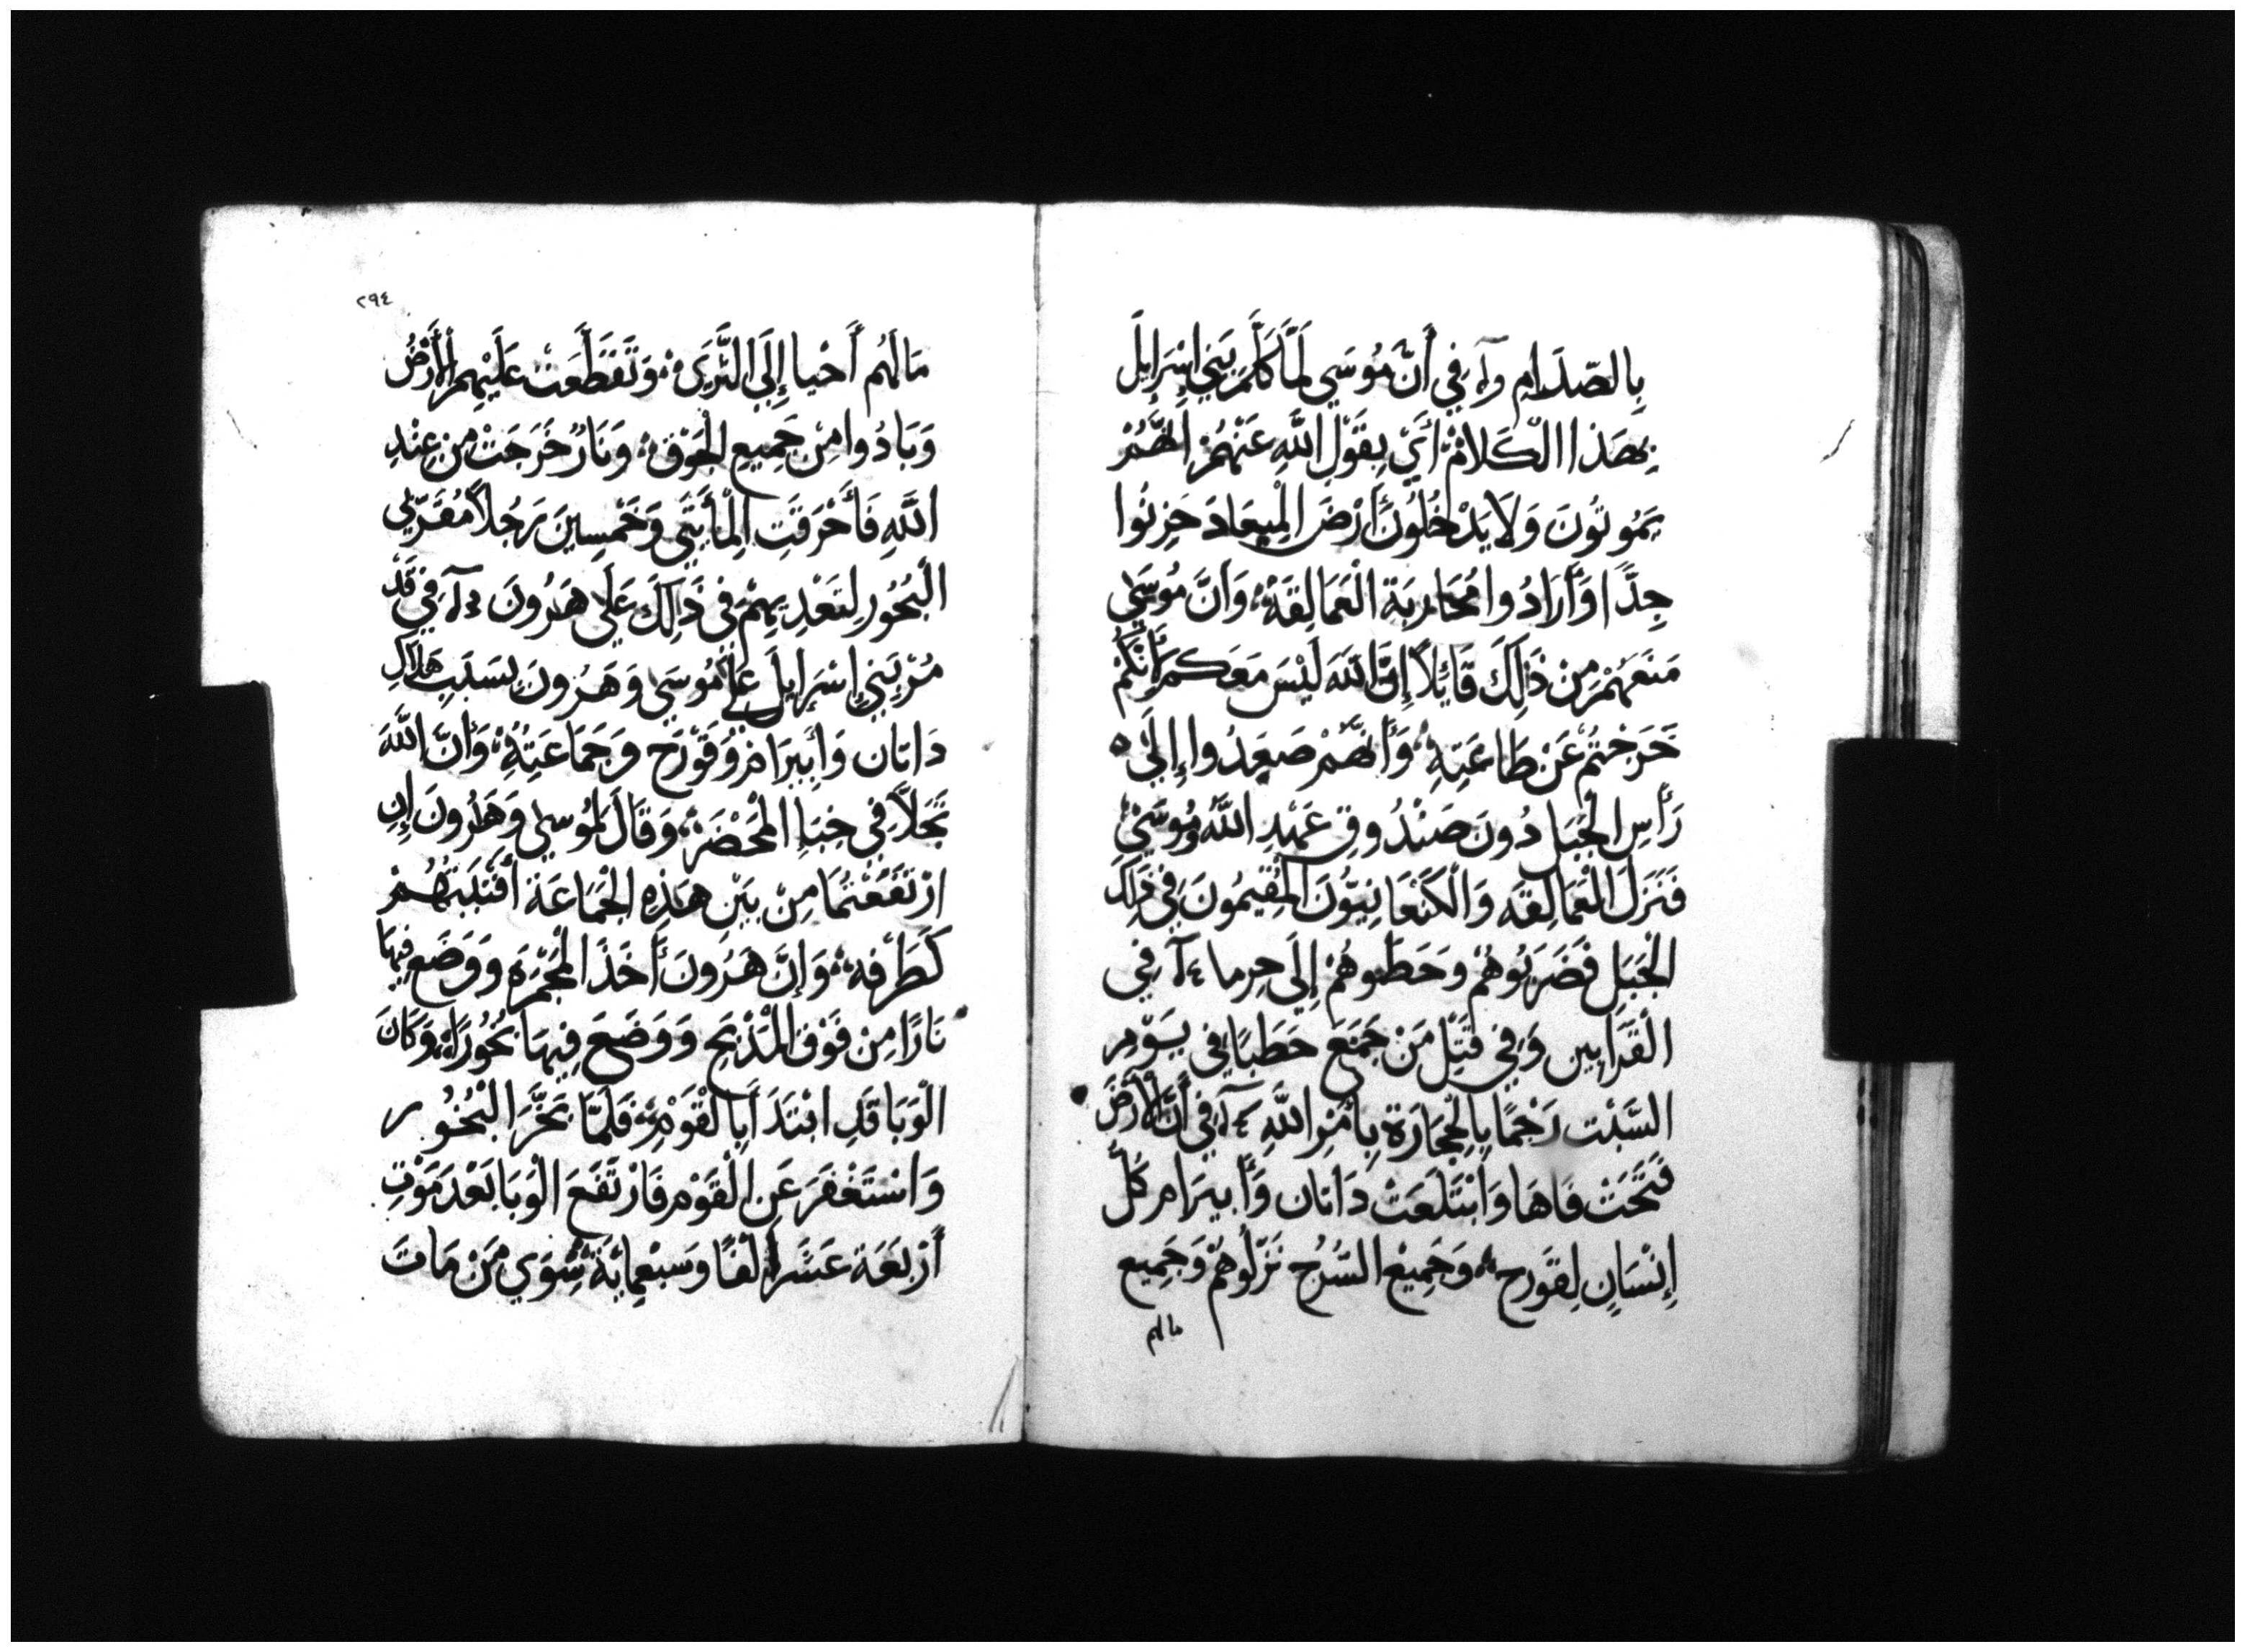 بِالصّدَامِ وآ، فِي أَنَّ مُوسَي لَمَّا كَلَّمَ بَنِي إِسْرَايِلَ
بِهَذَا الْكَلَامْ أَيْ بِقَوْلِ اللَّهِ عَنْهُمْ انَّهُمْ
يَمُوتُونَ وَلَا يَدْخُلُونَ أَرْضَ الْمِيعَادَ حَزِنُوا
جِدًّا وَأَرَادُوا مُحَارِبَةِ الْعَمَالِقَةِ، وَأَنَّ مُوسَي
مَنَعَهُمْ مِنْ ذَلِكَ قَائِلاً إِنَّ اللَّهَ لَيْسَ مَعَكم لأَنَّكُمْ
خَرَجْتُمْ عَنْ طَاعَتِهِ، وَأَنَّهُمْ صَعِدُوا إِلَي
رَأْسِ الْجَبَلِ دُونَ صَنْدُوقِ عَهْدِ اللَّهِ وَمُوسَيْ
فَنَزَلَ الْعَمَالِقَه وَالْكَنْعَانِيُّونَ الْمُقِيمُونَ فِي ذَلِكَ
الْجَبَلِ فَضَرَبُوهُمْ وَحَطَّموهُمْ إِلَى حِرما ٤آ فِي
الْقَرَابِين وَفِي قَتْلِ مَنْ جَمَعَ حَطَبًا فِي يَوْمِ
السَّبْت رَجْمًا بِالْحِجَارَةِ بِأَمْرِ اللَّهِ ٤آ فِي أَنَّ الْأَرْضَ
فَتَحَتْ فَاهَا وَابْتَلَعَتْ دَاتان وَأَبيرَام كُلَّ
إِنْسَانٍ لِقَورح، وَجَمِيعُ السَّرُج نَزَلُوهُمْ وَجَمِيع
مالهم
٢٩٤
مَالَهُم أَحْيا إِلَى الثَّرَى، وَتَقَطَّعَتْ عَلَيْهِم الْأَرْضُ
وَبَادُوا مِنْ جَمِيعِ الْجَوْقِ، وَنَارٌ خَرَجَتْ مِن عِنْدِ
اللَّهِ فَأَحْرَقَتِ الْمِأَيتَي وَخَمْسِينَ رَجُلاً مُقَرِّبي
الْبَخُورِ لِتَعْدِيهِمْ فِي ذَلِكَ عَلَى هَرُونَ ٥آ فِي تَذَ
مُرْ بَنِي إِسْرَايِلَ عَلَي مُوسَي وَهَرُونَ بِسَبَبِ هَلَاكِ
دَاتان وَأَبِيرَامْ وَقَوْرَح وَجَمَاعَتِهِ، وَأَنَّ اللَّهَ
تَجَلَّا فِي خِبَاءِ الْمَحْضَرْ، وَقَالَ لِمُوسى وَهَرُونَ إِنِ
ارْتَفَعْتُمَا مِنْ بَيْنِ هَذِهِ الْجَمَاعَة أَقْلَبَتْهُمْ
كَطَرْفه، وَإِنَّ هَرُونَ أَخَذَ الْمَجْمَرَة وَوَضَعَ فِيهَا
نَارًا مِنْ فَوْقِ الْمَذْبَحِ وَوَضَعَ فِيهَا بَخُورًا، وَكَانَ
الْوَبَا قَدِ ابْتَدَأ بِالْقَوْمِ، فَلَمَّا بَخَّرَ الْبُخُور
وَاسْتَغْفَرَ عَنِ الْقَوْمِ فَارْتَفَعَ الْوَبَا بَعْدَ مَوْتِ
أَرْبَعَة عَشَرَ أَلْفًا وَسَبْعِمِايَة سِوَي مَنْ مَاتَ